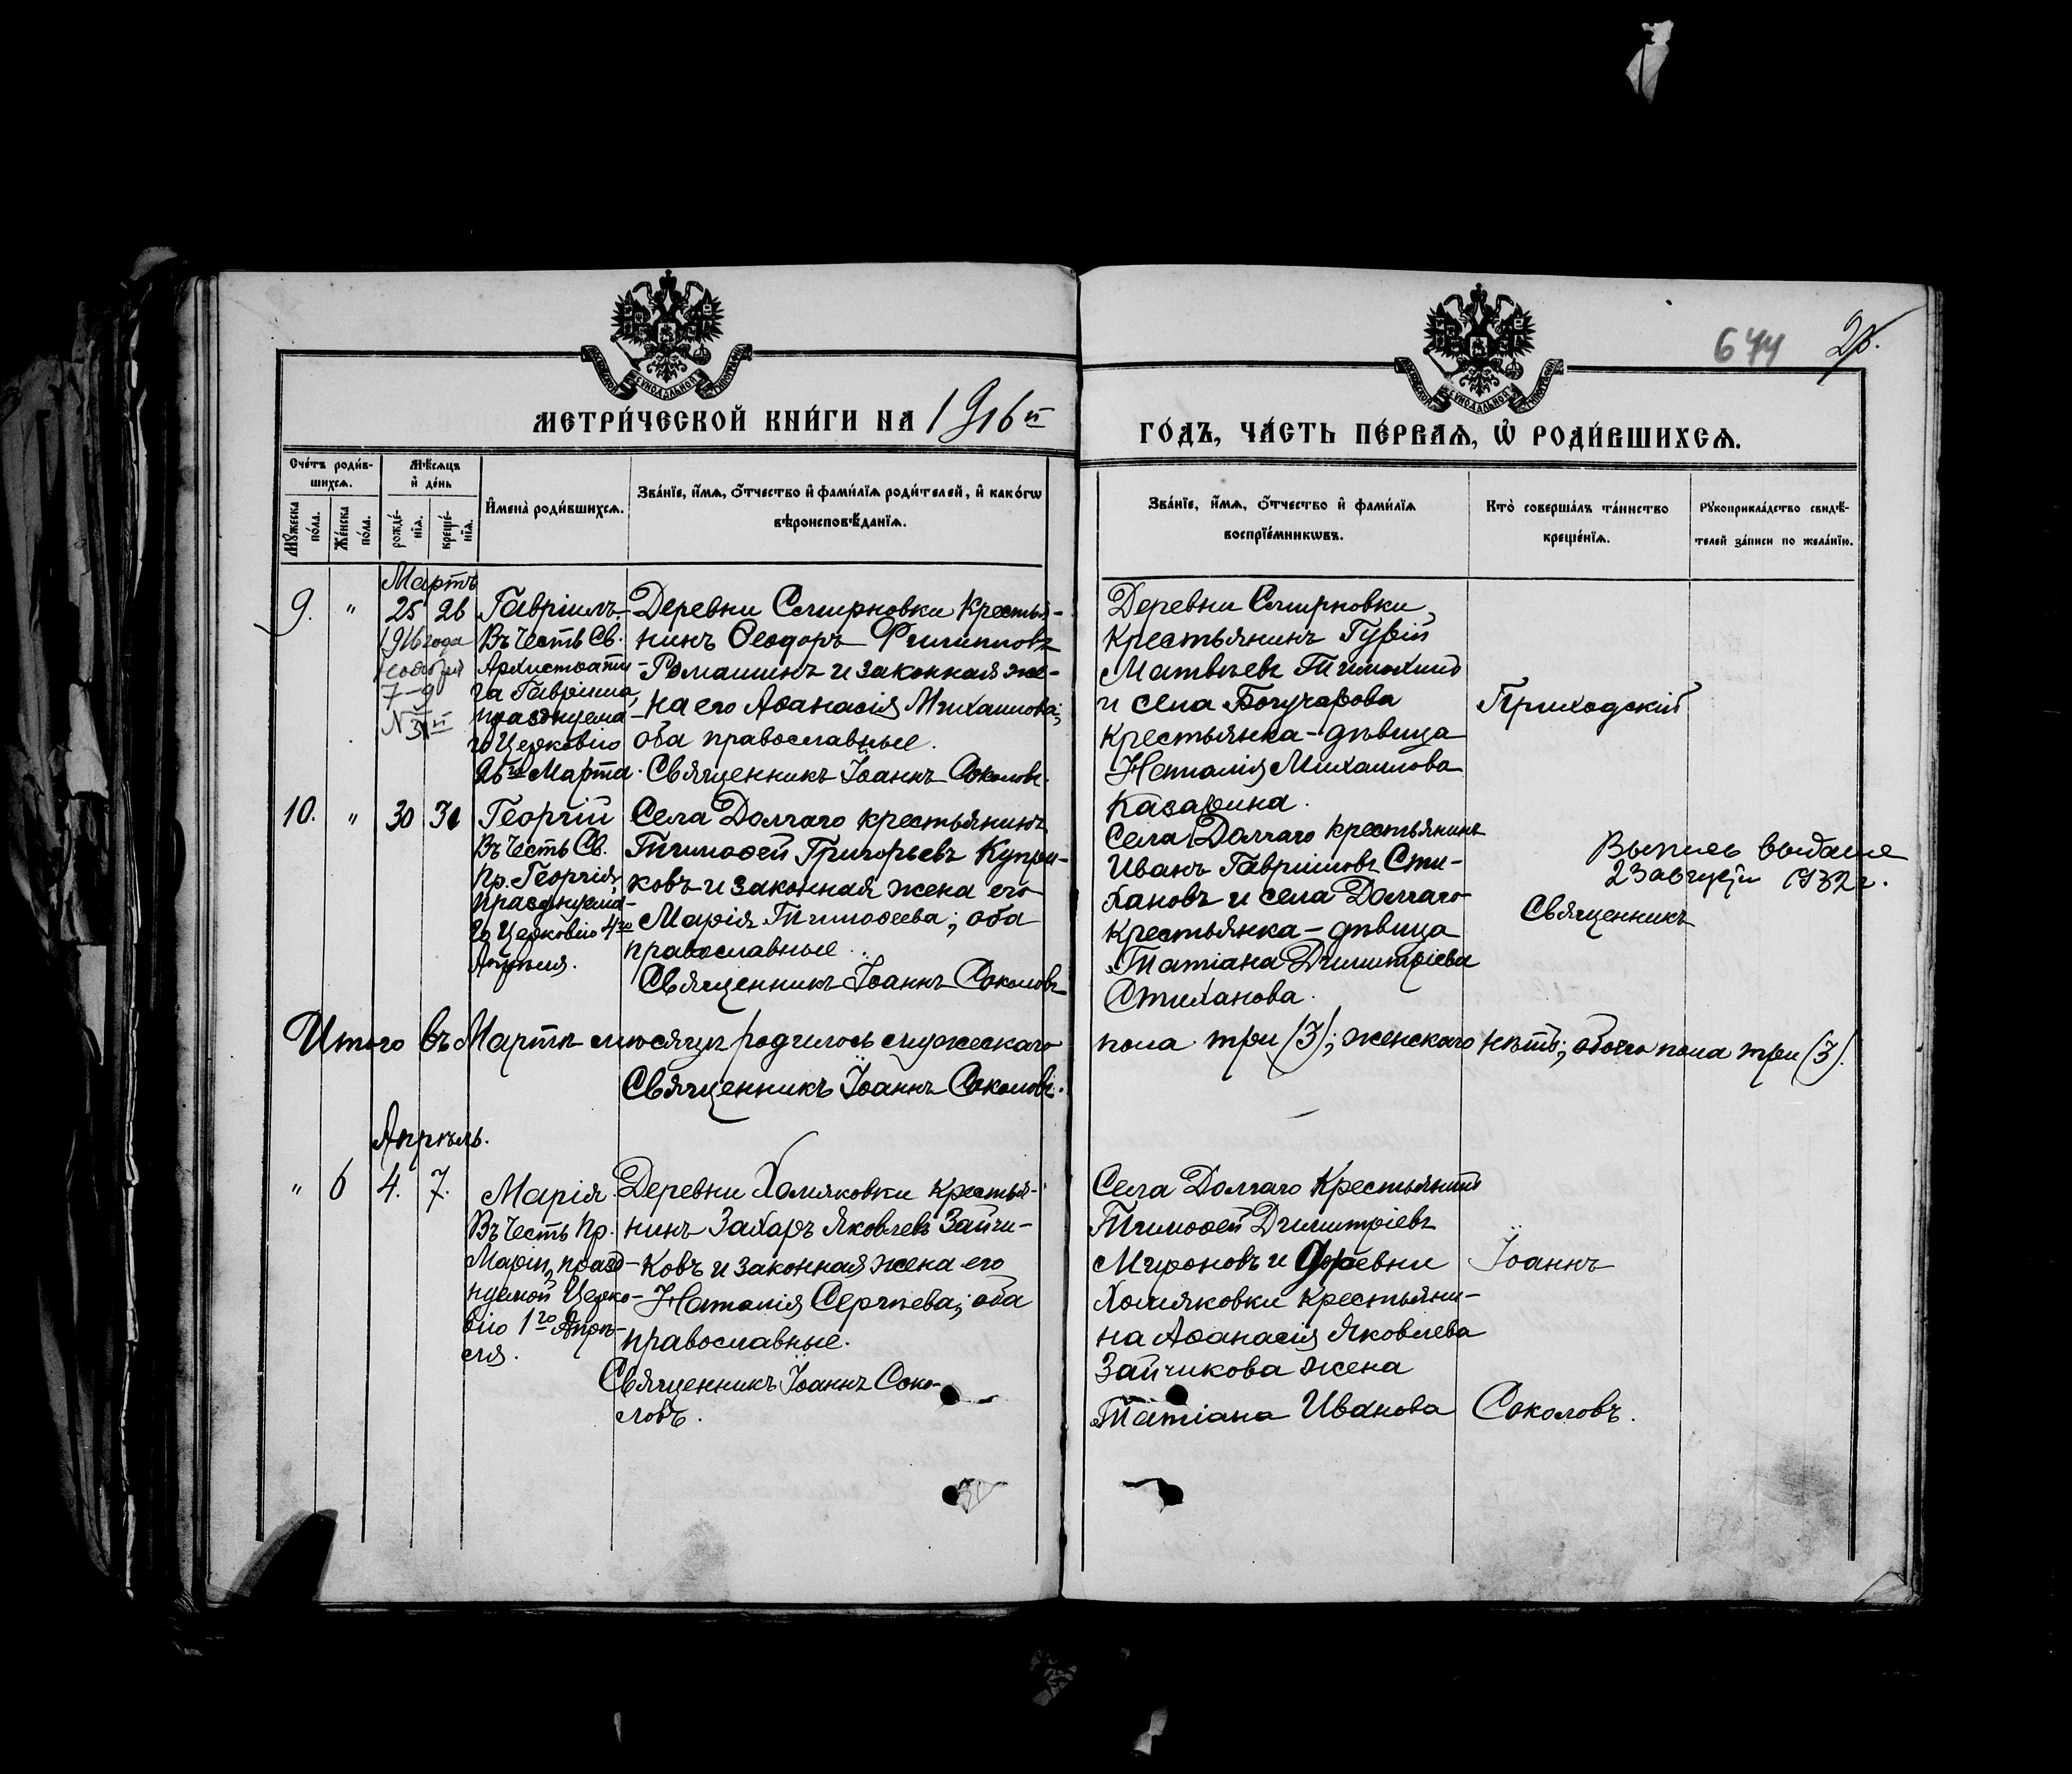 644 2об.
МЕТРИ́ЧЕСКОЙ КНИ́ГИ НА 1916й
ГО́ДЪ, ЧА́СТЬ ПЕ́РВАѦ, Ѡ҆ РОДИ́ВШИХСѦ.
Сче́тъ роди́в-
шихсѧ.
Мѣ́сѧцъ
и҆ де́нь
Мꙋ́жеска
по́ла.
Же́нска
по́ла.
рожде́-
нїѧ.
креще́-
нїѧ.
И҆мена̀ роди́вшихсѧ.
Зва́нїе, и҆́мѧ, ѻ҆́тчество и҆ фами́лїѧ роди́телей, и҆ како́гѡ
вѣроисповѣ́данїѧ.
Зва́нїе, и҆́мѧ, ѻ҆́тчество и҆ фами́лїѧ
воспрїе́мникѡвъ.
Кто̀ соверша́лъ та́инство
креще́нїѧ.
Рꙋкоприкла́дство свидѣ́-
телей за́писи по жела́нїю.
Мартъ
9. " 25 26
1916 года
ноября
7–9
Гавріилъ.
Въ честь Св.
Архистрати-
га Гавріила,
празднуема-
го Церковію
26го Марта.
Деревни Смирновки крестья-
нинъ Ѳеодоръ Филипповъ
Ромашинъ и законная же-
на его Аѳанасія Михаилова;
оба православные.
Священникъ Іоаннъ Соколовъ.
Деревни Смирновки
крестьянинъ Гурій
Матвѣевъ Тимохинъ
и села Богучарова
крестьянка-дѣвица
Наталія Михаилова
Казарина.
Приходскій
10. " 30 31
Георгій
Въ честь Св.
Пр. Георгія,
празднуема-
го Церковію 4го
Апрѣля.
Села Долгаго крестьянинъ
Тимоѳей Григорьевъ Купри-
ковъ и законная жена его
Марія Тимоѳеева; оба
православные.
Священникъ Іоаннъ Соколовъ
Села Долгаго крестьянинъ
Иванъ Гавріиловъ Сти-
хановъ и села Долгаго
крестьянка-дѣвица
Татіана Димитріева
Стиханова.
Священникъ
Выпись выдана
23 августа 1932 г.
Итого въ Мартѣ мѣсяцѣ родилось мужескаго
пола три (3); женскаго нѣтъ; обоего пола три (3).
Священникъ Іоаннъ Соколовъ.
Апрѣль.
" 6 4. 7.
Марія.
Въ честь Пр.
Маріи, празд-
нуемой Церко-
вію 1го Апрѣ-
ля.
Деревни Хомяковки крестья-
нинъ Захаръ Яковлевъ Зайчи-
ковъ и законная жена его
Наталія Сергѣева; оба
православные.
Священникъ Іоаннъ Соко-
ловъ.
Села Долгаго крестьянинъ
Тимоѳей Димитріевъ
Мироновъ и деревни
Хомяковки крестьяни-
на Аѳанасія Яковлева
Зайчикова жена
Татіана Иванова
Іоаннъ
Соколовъ.